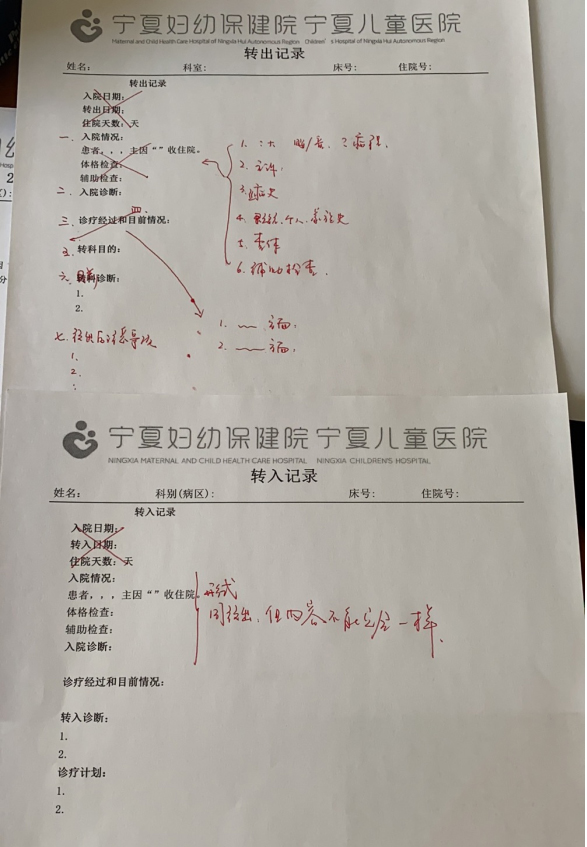 宁夏妇幼保健院 宁夏儿童医院
Maternal and Child Health Care Hospital of Ningxia Hui Autonomous Region Children's Hospital of Ningxia Hui Autonomous Region
转出记录
姓名: 科室: 床号: 住院号:
转出记录
入院日期:
转出日期:
住院天数: 天
一、入院情况:
患者,,,主因“”收住院。
体格检查:
辅助检查:
二、入院诊断:
1.
2. 主诉
3.
4. 个人、家族史
5. 查体
6. 辅助检查.
三、诊疗经过和目前情况:
四
五、转科目的:
六、诊断:
1.
2.
1. 方面:
2. 方面:
七.
1.
2.
宁夏妇幼保健院 宁夏儿童医院
NINGXIA MATERNAL AND CHILD HEALTH CARE HOSPITAL NINGXIA CHILDREN'S HOSPITAL
转入记录
姓名: 科别(病区): 床号: 住院号:
转入记录
入院日期:
转入日期:
住院天数: 天
入院情况:
患者,,,主因“”收住院。
体格检查:
辅助检查:
入院诊断:
形式
同转出,但内容不能完全一样.
诊疗经过和目前情况:
转入诊断:
1.
2.
诊疗计划:
1.
2.